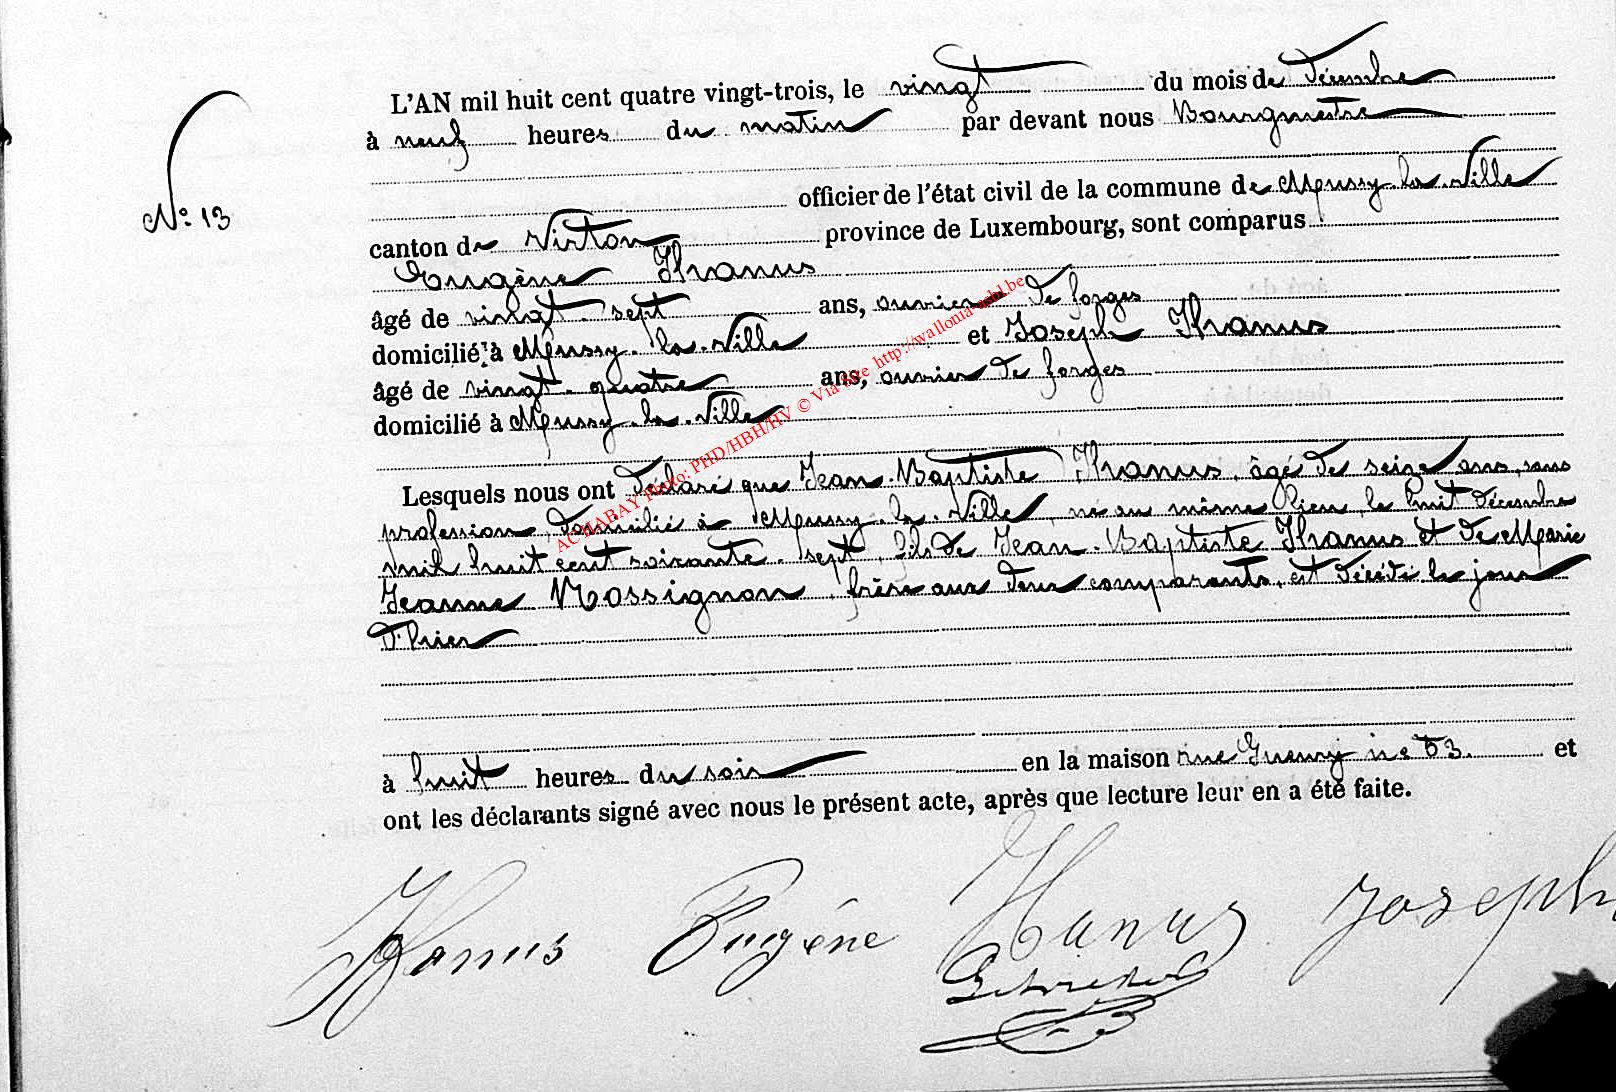 L'AN mil huit cent quatre vingt-trois, le vingt du mois de Décembre
à neuf heures du matin par devant nous Bourgmestre
officier de l'état civil de la commune de Mussy-la-Ville
N° 13
canton de Virton province de Luxembourg, sont comparus
Eugène Hanus
âgé de vingt-sept ans, ouvrier de forges
domicilié à Mussy-la-Ville et Joseph Hanus
âgé de vingt-quatre ans, ouvrier de forges
domicilié à Mussy-la-Ville
AC HABAY Photo: PHD/HBH/HV © Via Site http://wallonia-asbl.be
Lesquels nous ont déclaré que Jean-Baptiste Hanus, âgé de seize ans, sans
profession, domicilié à Mussy-la-Ville, né au même lieu, le huit décembre
mil huit cent soixante-sept, fils de Jean-Baptiste Hanus et de Marie
Jeanne Rossignon, frère aux deux comparants, est décédé le jour
d'hier
à huit heures du soir en la maison rue n° 53. et
ont les déclarants signé avec nous le présent acte, après que lecture leur en a été faite.
Hanus Eugène Hanus Joseph